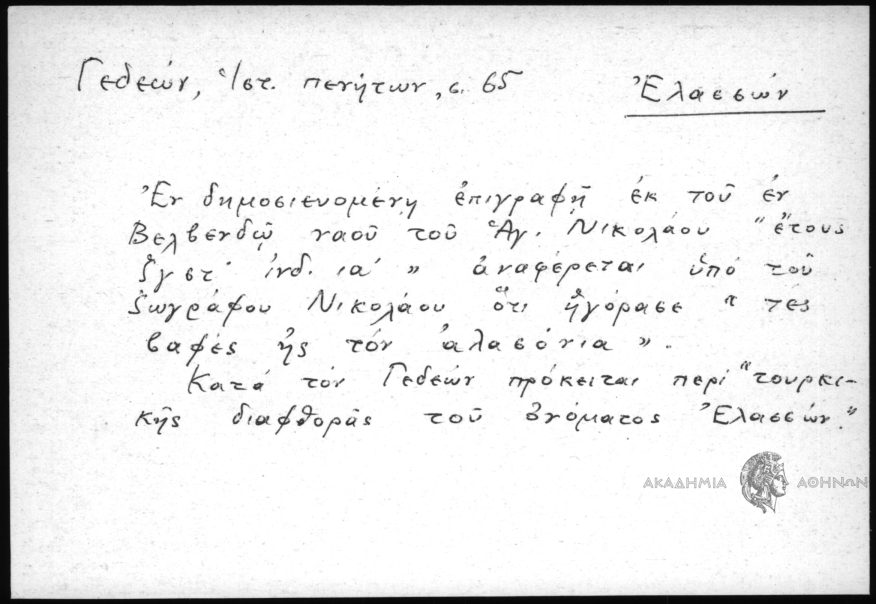 Γεδεών, Ἱστ. πενήτων, σ. 65
Ἐλασσών
Ἐν δημοσιευομένῃ ἐπιγραφῇ ἐκ τοῦ ἐν
Βελβενδῷ ναοῦ τοῦ Ἁγ. Νικολάου "ἔτους
ἰνδ. ια΄ » ἀναφέρεται ὑπό τοῦ
ζωγράφου Νικολάου ὅτι ἠγόρασε « τές
βαφές ἠς τόν ἀλασόνια ».
Κατά τόν Γεδεών πρόκειται περί "τουρκι-
κῆς διαφθορᾶς τοῦ ὀνόματος Ἐλασσών."
ΑΚΑΔΗΜΙΑ ΑΘΗΝΩΝ